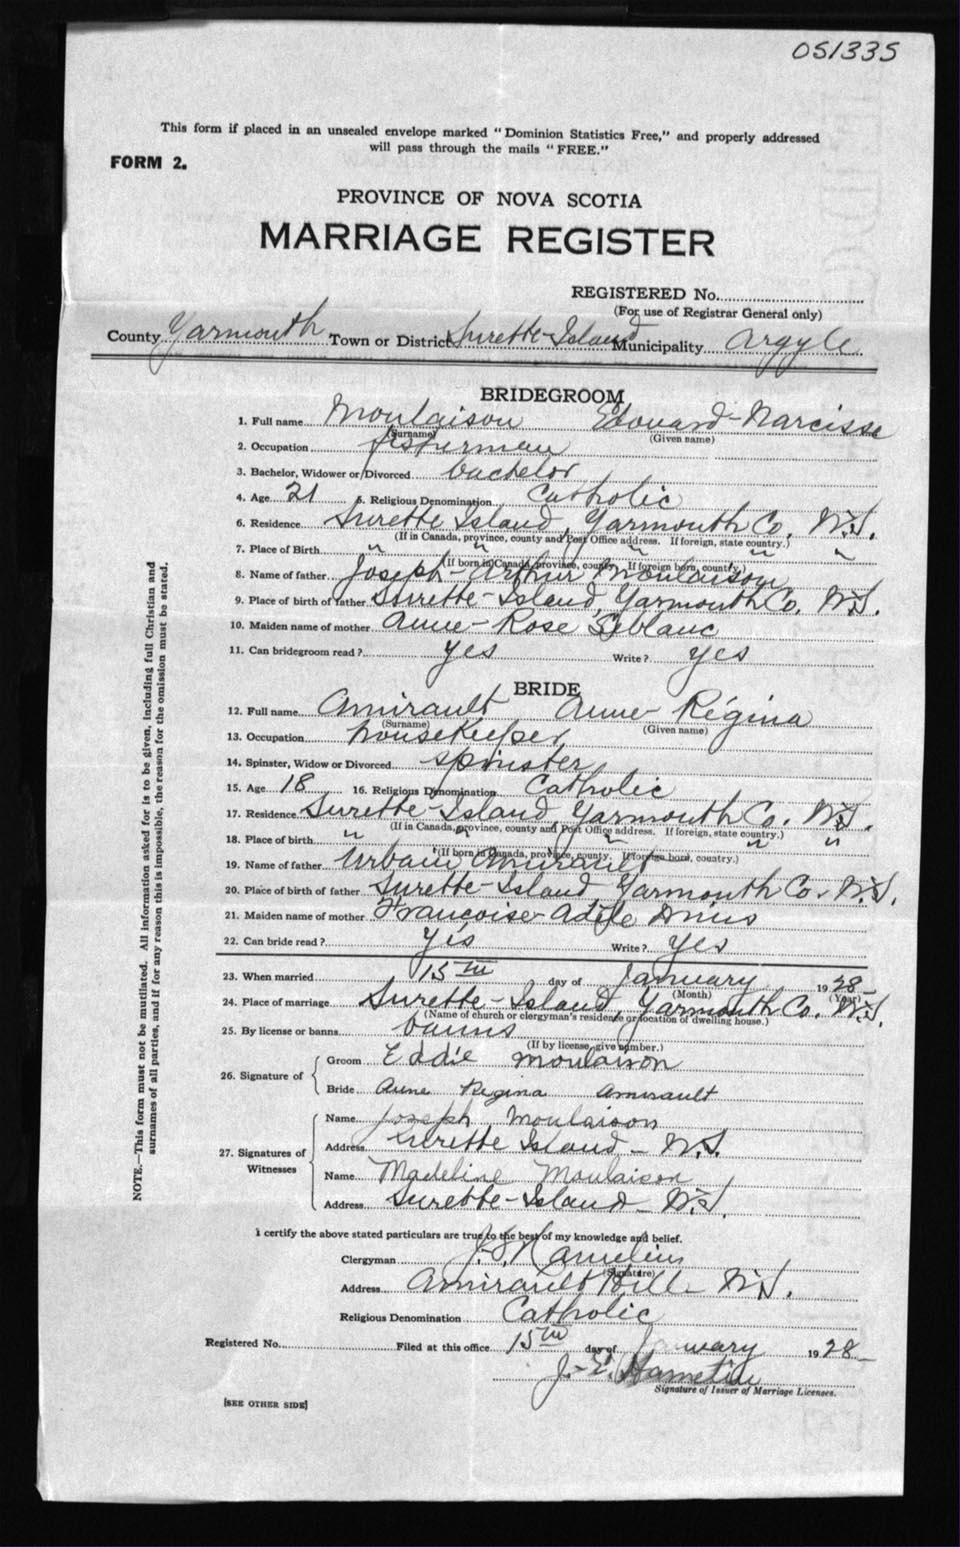 051335
This form if placed in an unsealed envelope marked "Dominion Statistics Free," and properly addressed
will pass through the mails "FREE."
FORM 2.
PROVINCE OF NOVA SCOTIA
MARRIAGE REGISTER
REGISTERED No.
(For use of Registrar General only)
County Yarmouth Town or District Surette-Island Municipality Argyle
BRIDEGROOM
1. Full name Moulaison Edouard-Narcisse
(Surname) (Given name)
2. Occupation fisherman
3. Bachelor, Widower or Divorced bachelor
4. Age 21 5. Religious Denomination Catholic
6. Residence Surette Island, Yarmouth Co. N.S.
(If in Canada, province, county and Post Office address. If foreign, state country.)
7. Place of Birth " " " " "
(If born in Canada, province, county. If foreign born, country.)
8. Name of father Joseph-Arthur Moulaison
9. Place of birth of father Surette-Island, Yarmouth Co. N.S.
10. Maiden name of mother Anne-Rose Leblanc
11. Can bridegroom read? yes Write? yes
BRIDE
12. Full name Amirault Anne Régina
(Surname) (Given name)
13. Occupation housekeeper
14. Spinster, Widow or Divorced spinster
15. Age 18 16. Religious Denomination Catholic
17. Residence Surette-Island, Yarmouth Co. N.S.
(If in Canada, province, county and Post Office address. If foreign, state country.)
18. Place of birth " " " " "
(If born in Canada, province, county. If foreign born, country.)
19. Name of father Urbain Amirault
20. Place of birth of father Surette-Island Yarmouth Co. N.S.
21. Maiden name of mother Françoise-Adèle
22. Can bride read? yes Write? yes
23. When married 15th day of January 1928
(Month) (Year)
24. Place of marriage Surette-Island, Yarmouth Co. N.S.
(Name of church or clergyman's residence or location of dwelling house.)
25. By license or banns banns
(If by license, give number.)
26. Signature of
Groom Eddie Moulaison
Bride Anne Regina Amirault
27. Signatures of Witnesses
Name Joseph Moulaison
Address Surette Island - N.S.
Name Madeline Moulaison
Address Surette-Island - N.S.
I certify the above stated particulars are true to the best of my knowledge and belief.
Clergyman
(Signature)
Address Amirault Hill N.S.
Religious Denomination Catholic
Registered No. Filed at this office 15th day of January 1928
J.-E.
Signature of Issuer of Marriage Licenses.
[SEE OTHER SIDE]
NOTE.—This form must not be mutilated. All information asked for is to be given, including full Christian and
surnames of all parties, and if for any reason this is impossible, the reason for the omission must be stated.